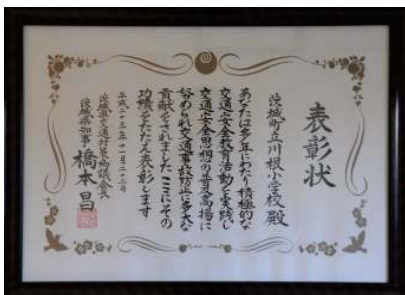 表彰状
茨城町立川根小学校殿
あなたは多年にわたり積極的な
交通安全教育活動を実践し
交通安全思想の普及高揚に
努められ交通事故防止に多大な
貢献をされましたここにその
功績をたたえ表彰します
平成二十三年十一月二十二日
茨城県交通対策協議会長
茨城県知事 橋本昌